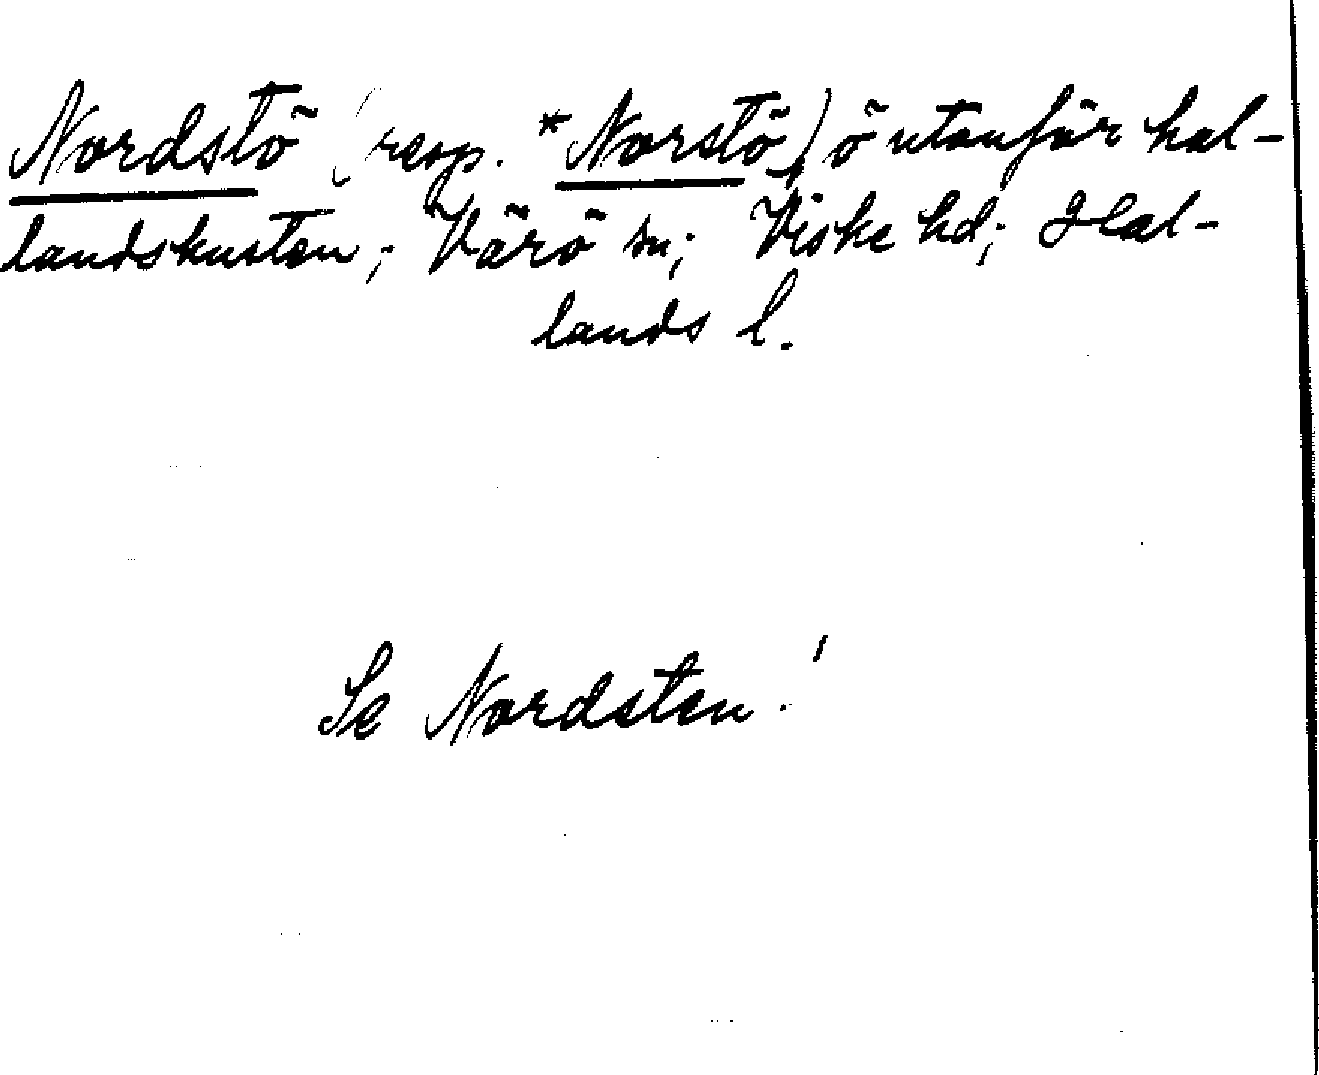 Nordstö (resp. *Norstö), ö utanför hal-
landskusten; Värö sn; Viske hd; Hal-
lands l.
Se Nordsten!